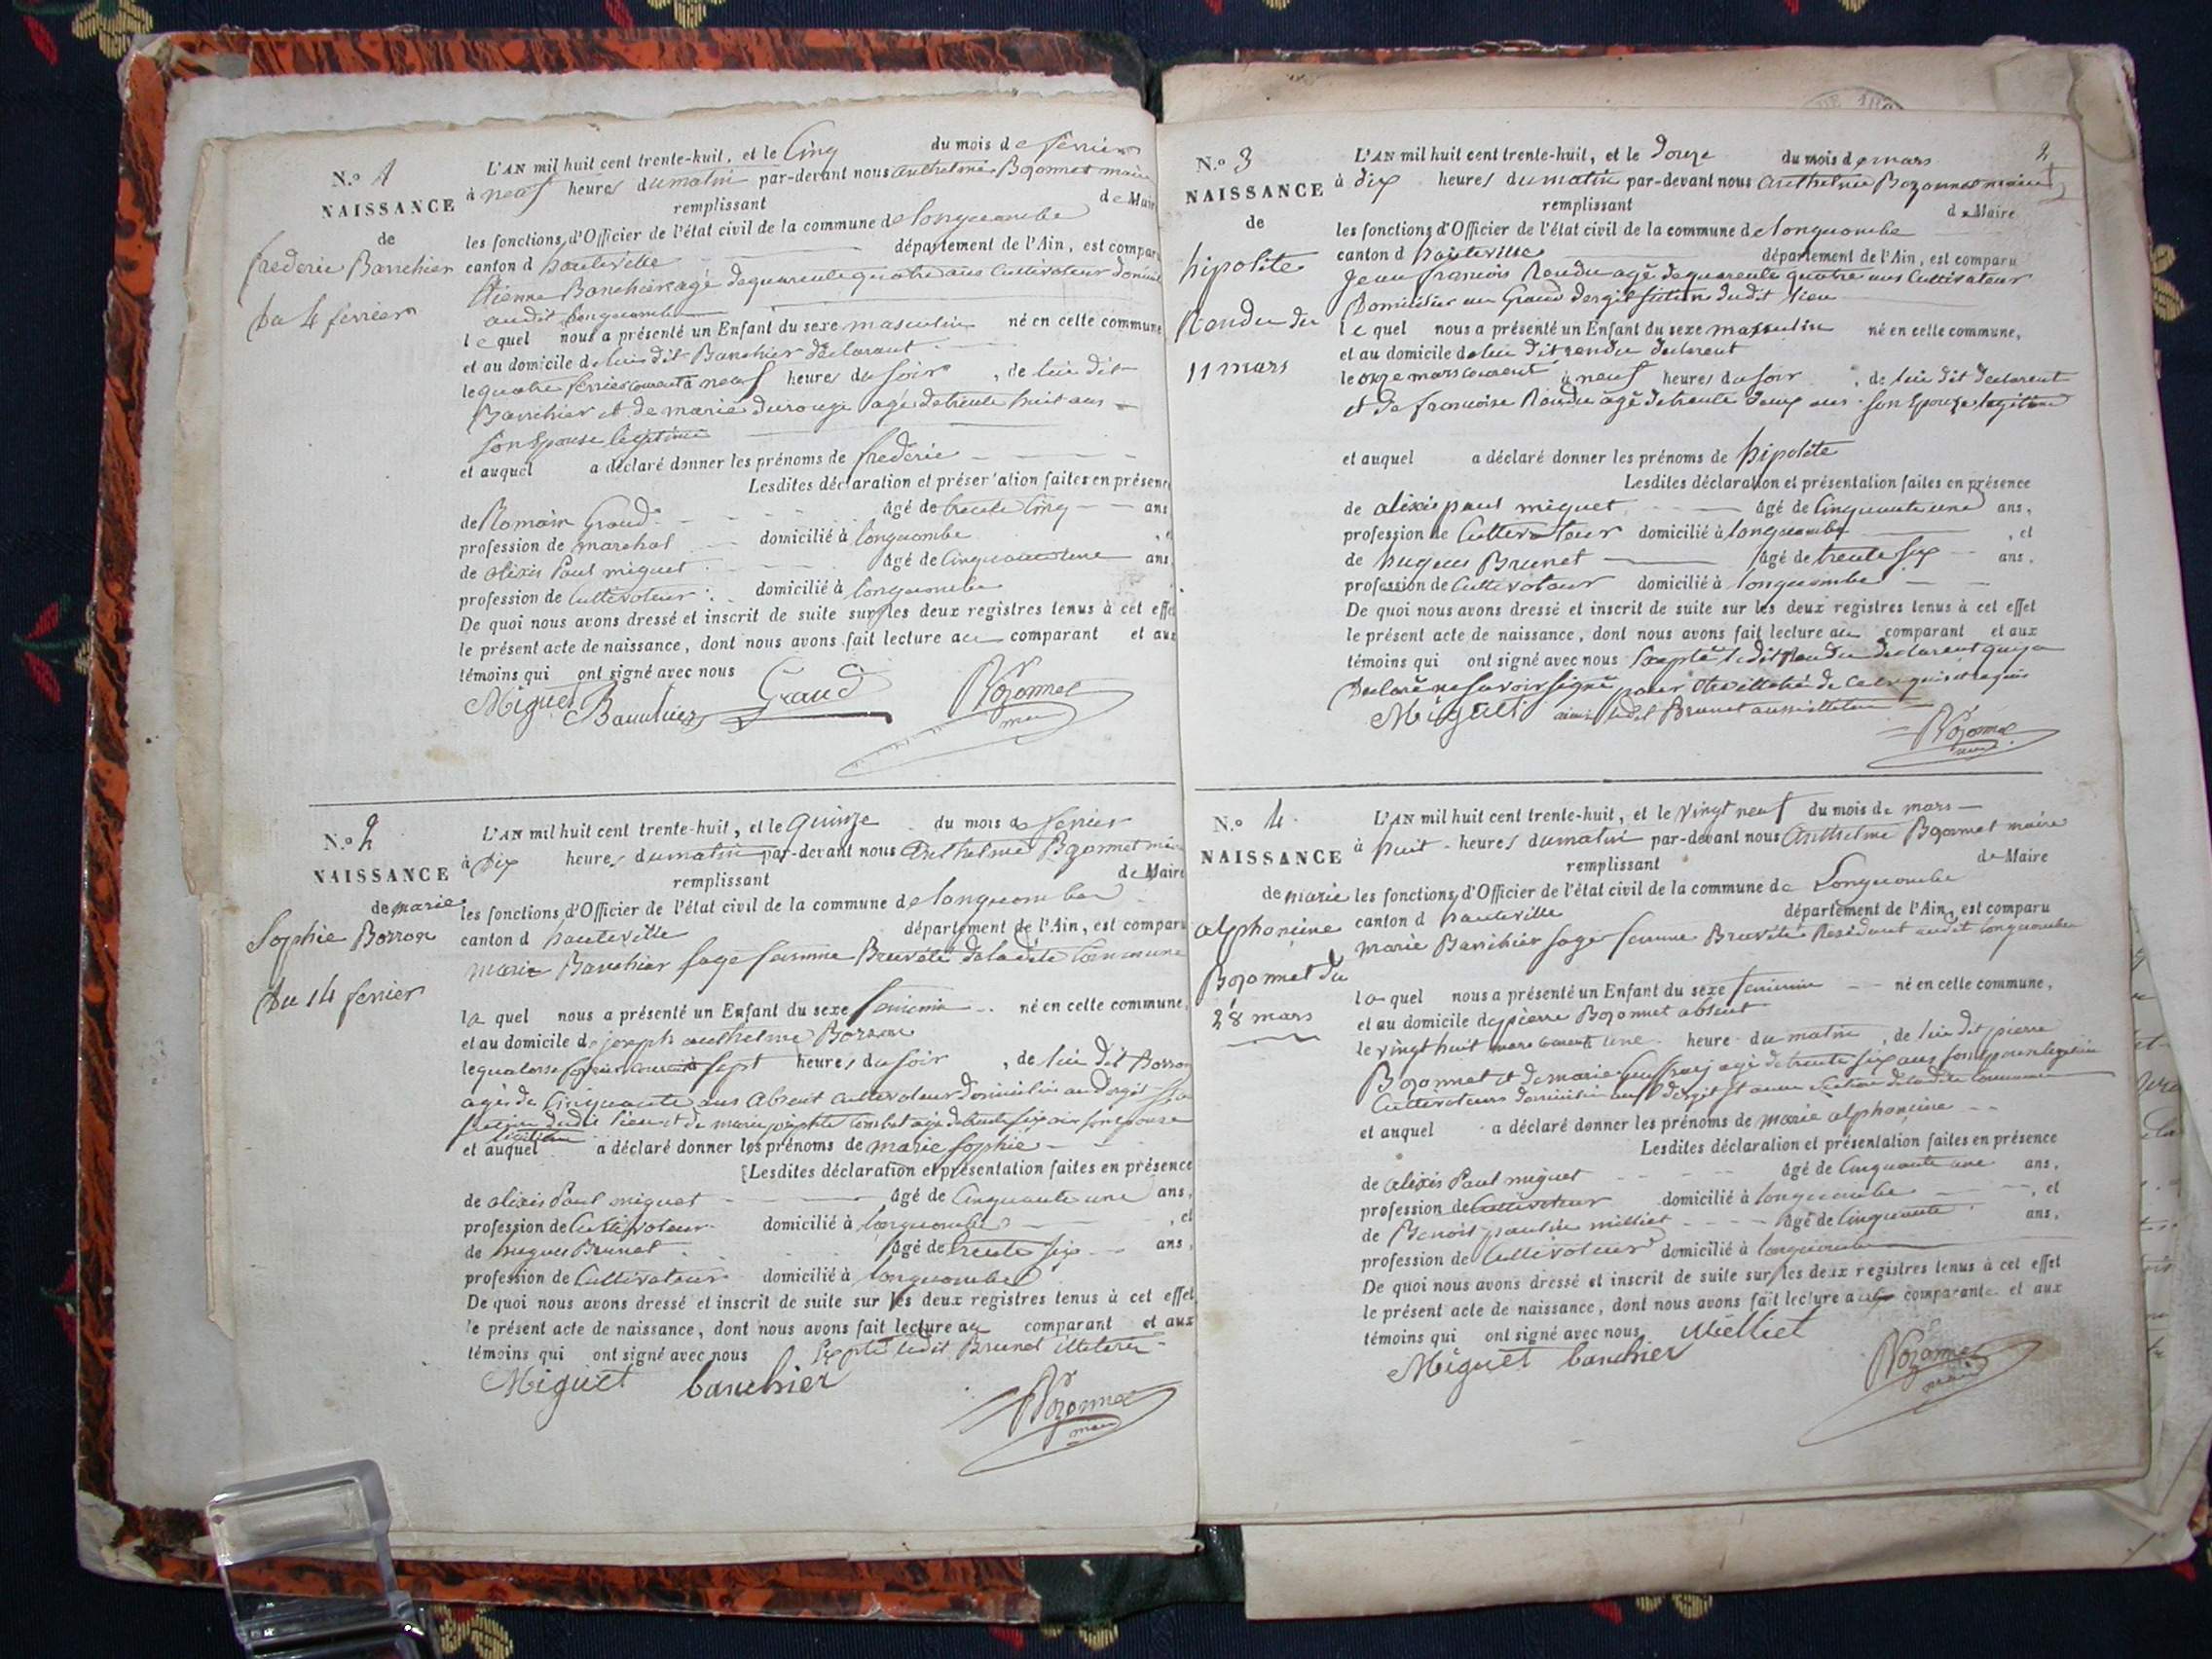 N.º 1
NAISSANCE
de
frederic Banchier
du 4 fevrier
L'AN mil huit cent trente-huit, et le Cinq du mois de fevrier
à neuf heures du matin par-devant nous anthelme Bozonnet maire
remplissant de Maire
les fonctions d'Officier de l'état civil de la commune de longecombe
canton d hauteville département de l'Ain, est comparu
Etienne Banchier agé de quarente quatre ans Cultivateur
audit longecombe
le quel nous a présenté un Enfant du sexe masculin né en cette commune
et au domicile de lui dit Banchier déclarant
le quatre fevrier courant à neuf heures du soir, de lui dit
Banchier et de marie durouge agé de trente huit ans
son Epouse legitime
et auquel a déclaré donner les prénoms de frederic
Lesdites déclaration et présentation faites en présence
de Romain Graud âgé de trente cinq ans
profession de marechal domicilié à longecombe
de alixis Paul miguet âgé de Cinquante une ans
profession de Cultivateur domicilié à longecombe
De quoi nous avons dressé et inscrit de suite sur les deux registres tenus à cet effet
le présent acte de naissance, dont nous avons fait lecture au comparant et aux
témoins qui ont signé avec nous
Miguet Banchier Graud Bozonnet
maire
N.º 2
NAISSANCE
de marie
Sophie Borron
du 14 fevrier
L'AN mil huit cent trente-huit, et le quinze du mois de fevrier
à dix heures du matin par-devant nous Anthelme Bozonnet maire
remplissant de Maire
les fonctions d'Officier de l'état civil de la commune de longecombe
canton d hauteville département de l'Ain, est comparu
marie Banchier sage femme Brevété de ladite Commune
la quel nous a présenté un Enfant du sexe feminin né en cette commune,
et au domicile de joseph anthelme Borron
le quatorze fevrier courant à sept heures du soir, de lui dit Borron
agé de Cinquante ans absent cultivateur domicilié au
dudit lieu et de marie josephte agé de trente six ans son epouse
legitime
et auquel a déclaré donner les prénoms de marie sophie
Lesdites déclaration et présentation faites en présence
de alixis Paul miguet âgé de Cinquante une ans,
profession de Cultivateur domicilié à longecombe, et
de hugues Brunet âgé de trente six ans,
profession de Cultivateur domicilié à longecombe
De quoi nous avons dressé et inscrit de suite sur les deux registres tenus à cet effet
le présent acte de naissance, dont nous avons fait lecture au comparant et aux
témoins qui ont signé avec nous Excepté ledit Brunet illeteré
Miguet banchier Bozonnet
maire
2
N.º 3
NAISSANCE
de
hipolite
Rendu du
11 mars
L'AN mil huit cent trente-huit, et le douze du mois de mars
à dix heures du matin par-devant nous anthelme Bozonnet maire
remplissant de Maire
les fonctions d'Officier de l'état civil de la commune de longecombe
canton d hauteville département de l'Ain, est comparu
Jean francois Rendu agé de quarente quatre ans Cultivateur
Domicilié au Grand dergit section dudit lieu
le quel nous a présenté un Enfant du sexe masculin né en cette commune,
et au domicile de lui dit rendu declarent
le onze mars courent à neuf heures du soir, de lui dit declarent
et de francoise Rendu agé de trente deux ans son Epouze legitime
et auquel a déclaré donner les prénoms de hipolite
Lesdites déclaration et présentation faites en présence
de alixis paul miguet âgé de Cinquante une ans,
profession de Cultivateur domicilié à longecombe, et
de hugues Brunet âgé de trente six ans,
profession de Cultivateur domicilié à longecombe
De quoi nous avons dressé et inscrit de suite sur les deux registres tenus à cet effet
le présent acte de naissance, dont nous avons fait lecture au comparant et aux
témoins qui ont signé avec nous Excepté ledit Rendu declarent qui a
declaré ne savoir signé pour être illeteré de ce enquis et requis
Miguet ainsi ledit Brunet aussi illeteré
Bozonnet
maire
N.º 4
NAISSANCE
de marie
alphoncine
Bozonnet du
28 mars
L'AN mil huit cent trente-huit, et le vingt neuf du mois de mars
à huit heures du matin par-devant nous Anthelme Bozonnet maire
remplissant de Maire
les fonctions d'Officier de l'état civil de la commune de Longecombe
canton d hauteville département de l'Ain, est comparu
marie Banchier sage femme Brevété Residant audit longecombe
la quel nous a présenté un Enfant du sexe feminin né en cette commune,
et au domicile de pierre Bozonnet absent
le vingt huit mars courent à une heure du matin, de lui dit pierre
Bozonnet et de marie agé de trente six ans son epouse legitime
Cultivateurs domicilié au dergit section de ladite Commune
et auquel a déclaré donner les prénoms de marie alphoncine
Lesdites déclaration et présentation faites en présence
de alixis Paul miguet âgé de Cinquante une ans,
profession de Cultivateur domicilié à longecombe, et
de Benoit milliet âgé de Cinquante ans,
profession de Cultivateur domicilié à longecombe
De quoi nous avons dressé et inscrit de suite sur les deux registres tenus à cet effet
le présent acte de naissance, dont nous avons fait lecture a comparante et aux
témoins qui ont signé avec nous Milliet
Miguet banchier Bozonnet
maire